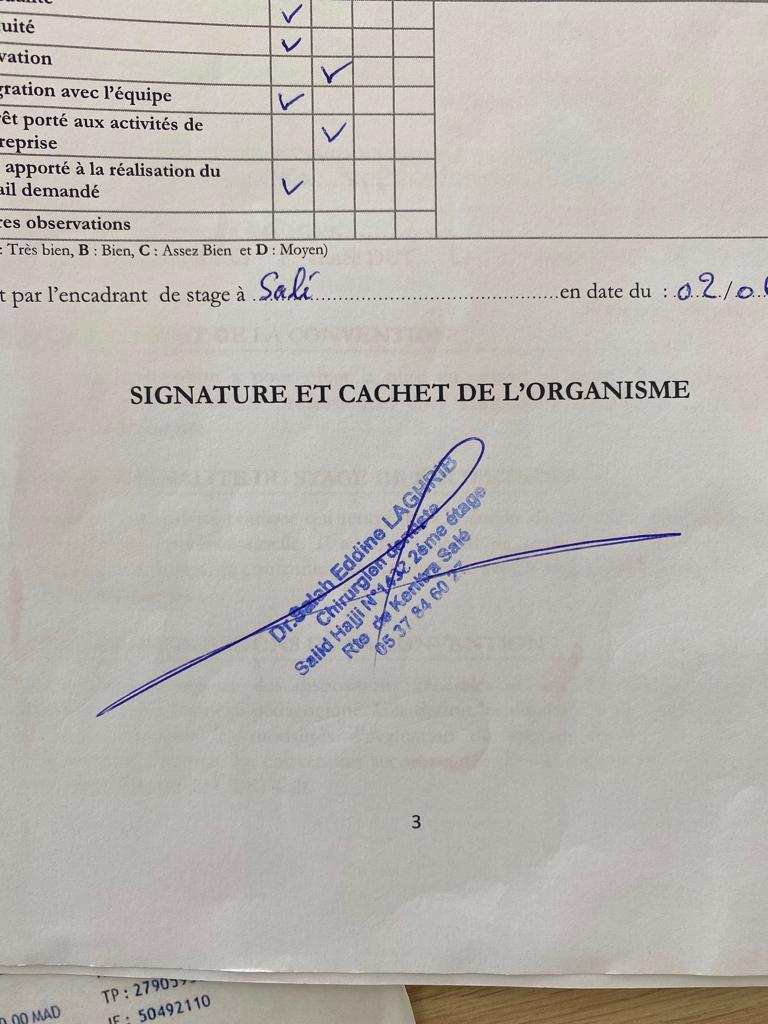 uité
vation
gration avec l'équipe
êt porté aux activités de
reprise
apporté à la réalisation du
ail demandé
res observations
: Très bien, B : Bien, C : Assez Bien et D : Moyen)
t par l'encadrant de stage à Salé en date du : 02/0
SIGNATURE ET CACHET DE L'ORGANISME
Dr. Salah Eddine LAGHRIB
Chirurgien dentiste
Saïd Hajji N°1432 2éme étage
Rte de Kenitra Salé
05 37 84 60
3
0.00 MAD
TP : 27905
IF : 50492110